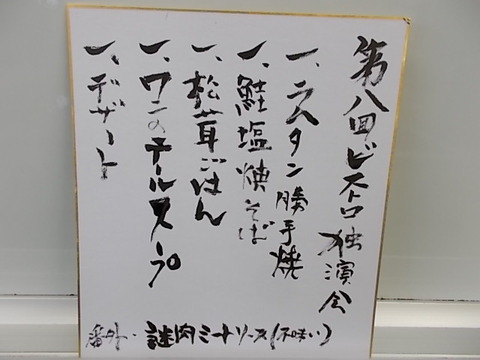 第八回ビストロ独演会
一、ラムタン勝手焼
一、鮭塩焼そば
一、松茸ごはん
一、ワニのテールスープ
一、デザート
番外・謎肉ミートソース(不味い)